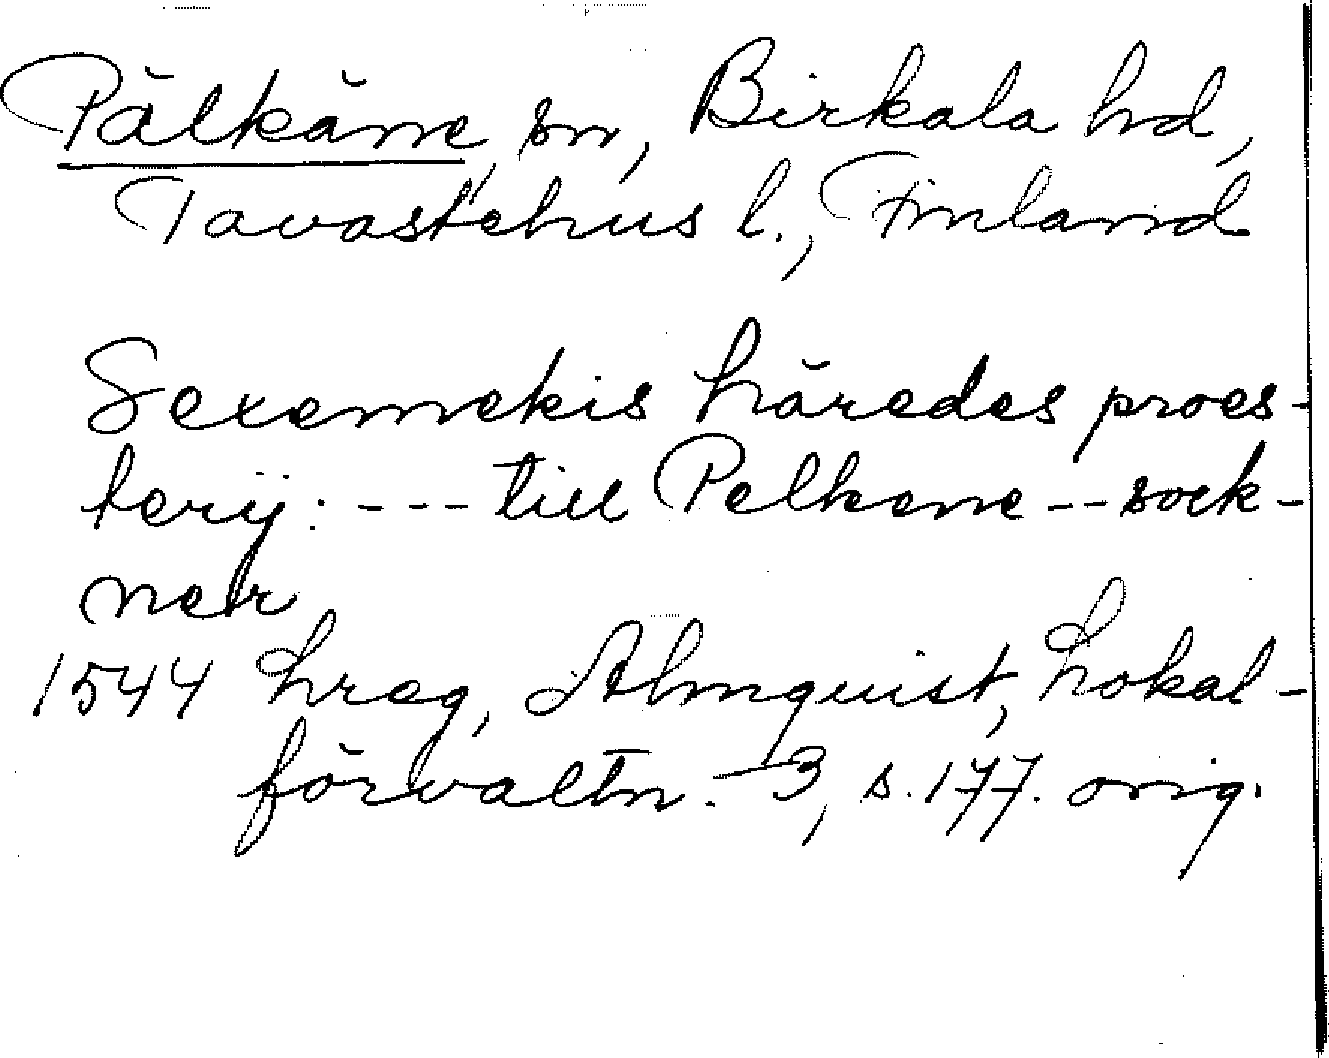 Pälkäne, sn, Birkala hd,
Tavastehus l., Finland
Sexemekis häredes proes-
terij: --- till Pelkene -- sock-
ner
1544 hreg, Almquist, Lokal-
förvaltn. 3, s. 177. orig.